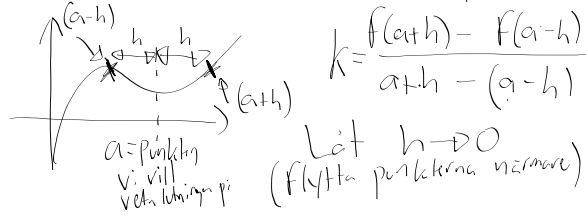 (a-h)
h h
(a+h)
a = punkten
vi vill
veta lutningen på
k = \frac{f(a+h) - f(a-h)}{a+h - (a-h)}
Låt h → 0
(Flytta punkterna närmare)